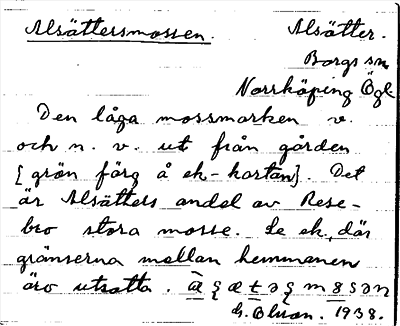 Alsättersmossen. Alsätter.
Borgs sn
Norrköping Ögl
Den låga mossmarken v.
och n. v. ut från gården
[grön färg å ek-kartan]. Det
är Alsätters andel av Rese-
bro stora mosse. Se ek, där
gränserna mellan hemmanen
äro utsatta.
1938.